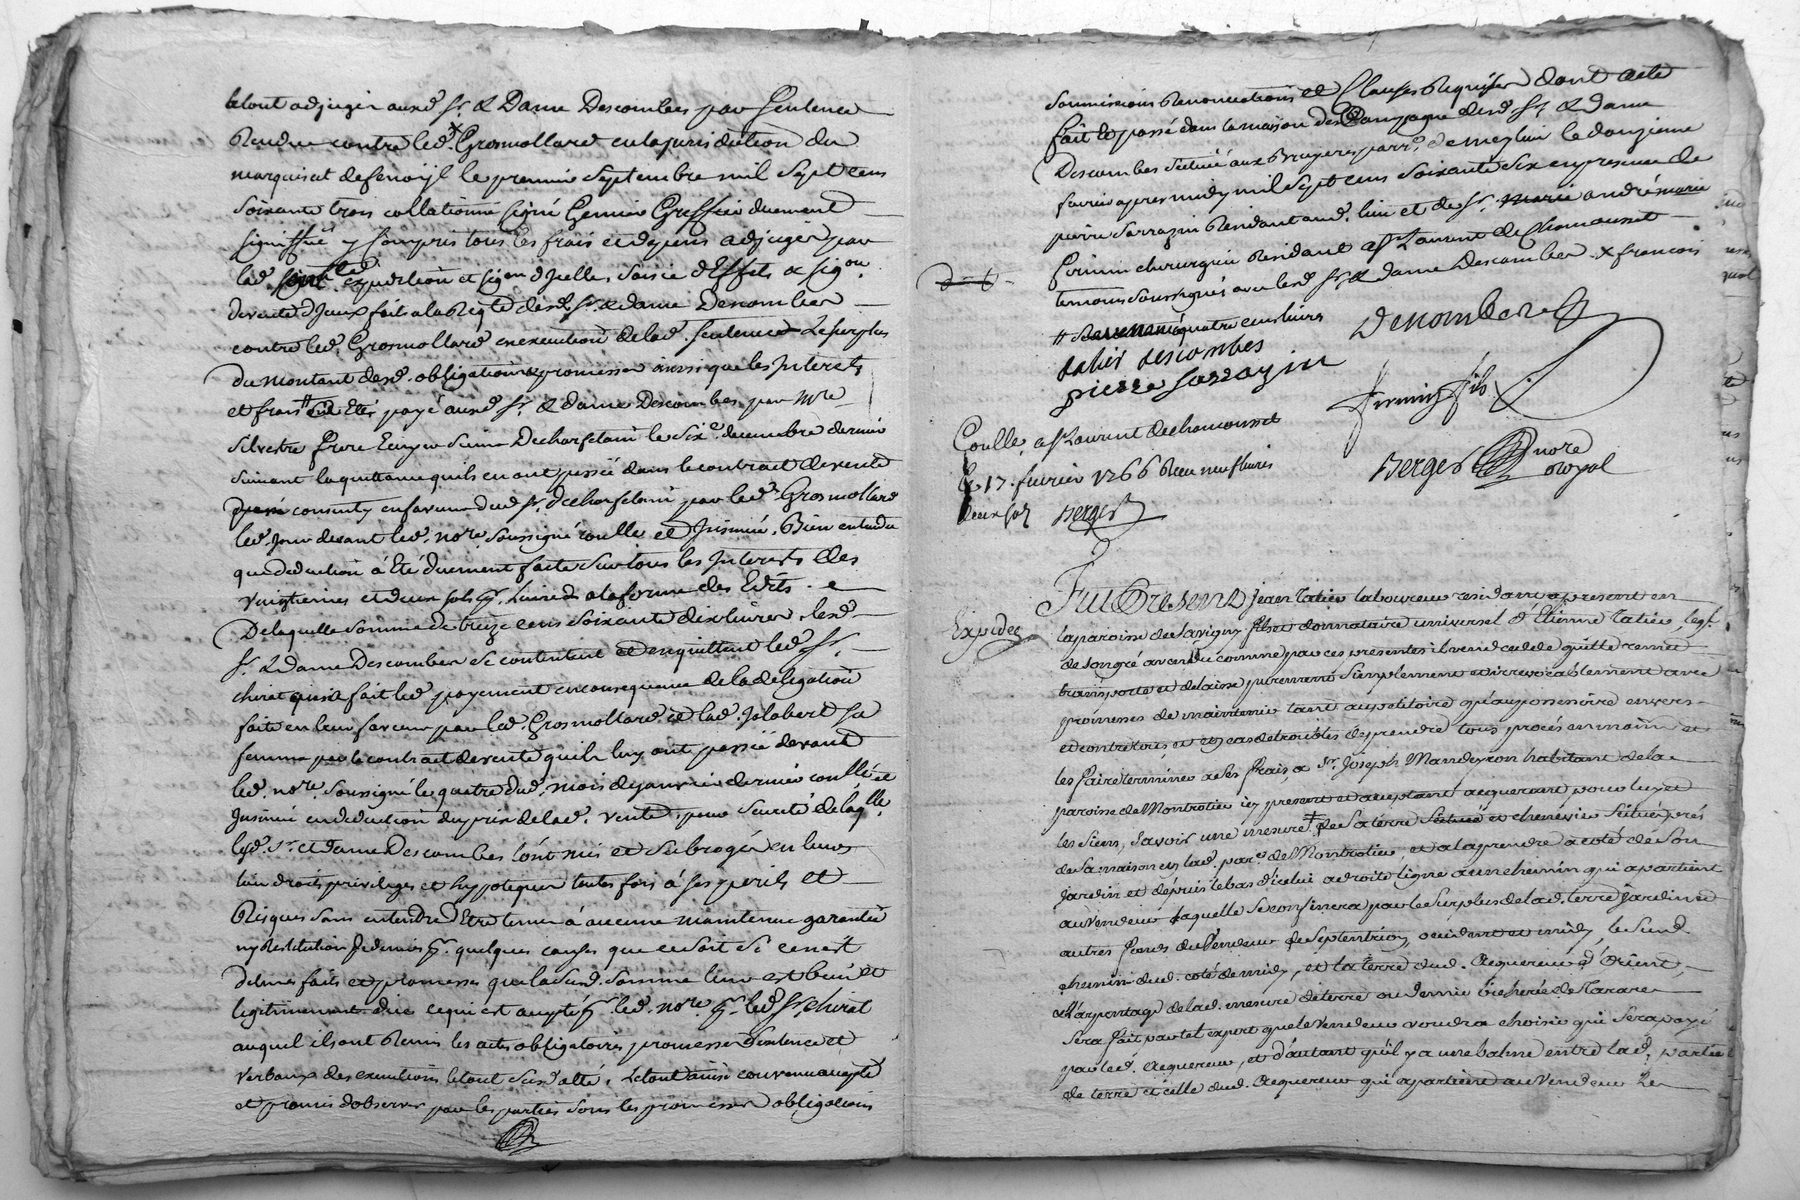 letout adjugér auxd. sr. & Dame Descombes par Sentence
Rendue contre led. x Grosmollard en la jurisdiction du
marquisat de fenoÿl le premier Septembre mil Sept cens
soixante trois collationné signé Greffier duement
signiffié y compris tous les frais et depens adjugez par
lad. expedition et sigon d'jcelle, saisie d'Effets & sigon
de vente d'jceux fait a la Reqte desd. sr. & dame Descombes
contre led. Grosmollard en execution de lad. Sentence Le surplus
du montant desd. obligations & promesses ainsi que les Interets
et frais # Eté payé auxd. sr. & Dame Descombes par Mre
Silvestre Ecuyer le six.e decembre dernier
suivant la quittance quils en ont passée dans le contrat de vente
consenty en faveur dud. sr. par led. Grosmollard
led. jour devant led. nore. soussigné coulle et Insinué. Bien entendu
que deduction à Eté duement faite sur tous les Interets des
vingtiemes et deux sols pr. Livre a la forme des Edits.
De laquelle somme de treize cens soixante dix livres, lesd.
sr. & dame Descombes se contentent et en quittent led. sr.
chirat fait led. payement en consequence de la delegation
faite en leur faveur par led. Grosmollard et lad. Jalabert sa
femme par le contrat de vente quils luy ont passée devant
led. nore. soussigné le quatre dud. mois de janvier dernier coullé et
Insinué en deduction du prix de lad. vente, pour sureté de laqlle.
lesd. sr. et dame Descombes l'ont mis et subrogé en leurs
lieu droits privileges et hypoteques toutes fois à ses perils et
Risques sans entendre Etre tenus à aucune maintenue garantie
ny Restitution de deniers pr. quelques causes que ce soit si ce n'est
de leurs faits et promesses que la susd. somme leur est bien et
legitimement due ce qui est accepté pr. led. nore. pr. led. sr. chirat
auquel ils ont Remis les actes obligatoires, promesses Sentence et
verbaux des executions letout susd. Letout ainsi convenu accepté
et promis d'observer par les parties sous les promesses obligations
soumissions Renonciations et Clauses Requises dont acte
fait et passé dans la maison de Campagne desd. sr. & dame
Descombes située aux Bruyeres parr.e de meylieu le douzieme
fevrier apres midy mil Sept cens Soixante Six en presence de
pierre Sarrazin Residant aud. lieu et de sr. marie andré marie
firmin chirurgien Residant a st. Laurent de Chamousset
temoins soussignés avec lesd. sr. & dame Descombes x francois
# quatre cens livres
Descombes
descombes
pierre Sarrazin
firmin fils
Coulle a st. Laurent de chamousset
le 17. fevrier 1766 Reçu neuf livres
deux sols Berger
Berger nore royal
Expediee
Fut Present Jean Tatieu laboureur residant a present en
la paroisse de Savigny fils et donnataire universel d'Etienne Tatieu, leql.
de son gré a vendu comme par ces presentes il vend cede quitte remet
transporte et delaisse purement Simplement et irrevocablement avec
promesses de maintenir tant au petitoire qu'au possessoire envers
et contre tous et en cas de troubles de prendre tous procés en main et
les faire terminer a ses frais, a Sr. Joseph Mandeyron habitant de la
paroisse de Montrotier icy present et acceptant acquerant pour luy et
les siens, Savoir une mesure de Sa terre Située et cheneviere Située prés
de Sa maison en lad. par.e de Montrotier et a la prendre a coté de Son
jardin et depuis le bas d'icelui a droite ligne a un chemin qui apartient
au vendeur laquelle se confinera par le Surplus de lad. terre Jardin et
autres fonds du Vendeur de Septentrion, occident et midy le Susd.
chemin dud. coté de midy, et la terre dud. Acquereur d'Orient,
& l'arpentage de lad. mesure de terre ou demie bicherée de Tarare
Sera fait par tel expert que le Vendeur voudra choisir qui Sera payé
par led. Acquereur, et d'autant qu'il y a une balme entre lad. partie
de terre et celle dud. Acquereur qui apartient au Vendeur Le